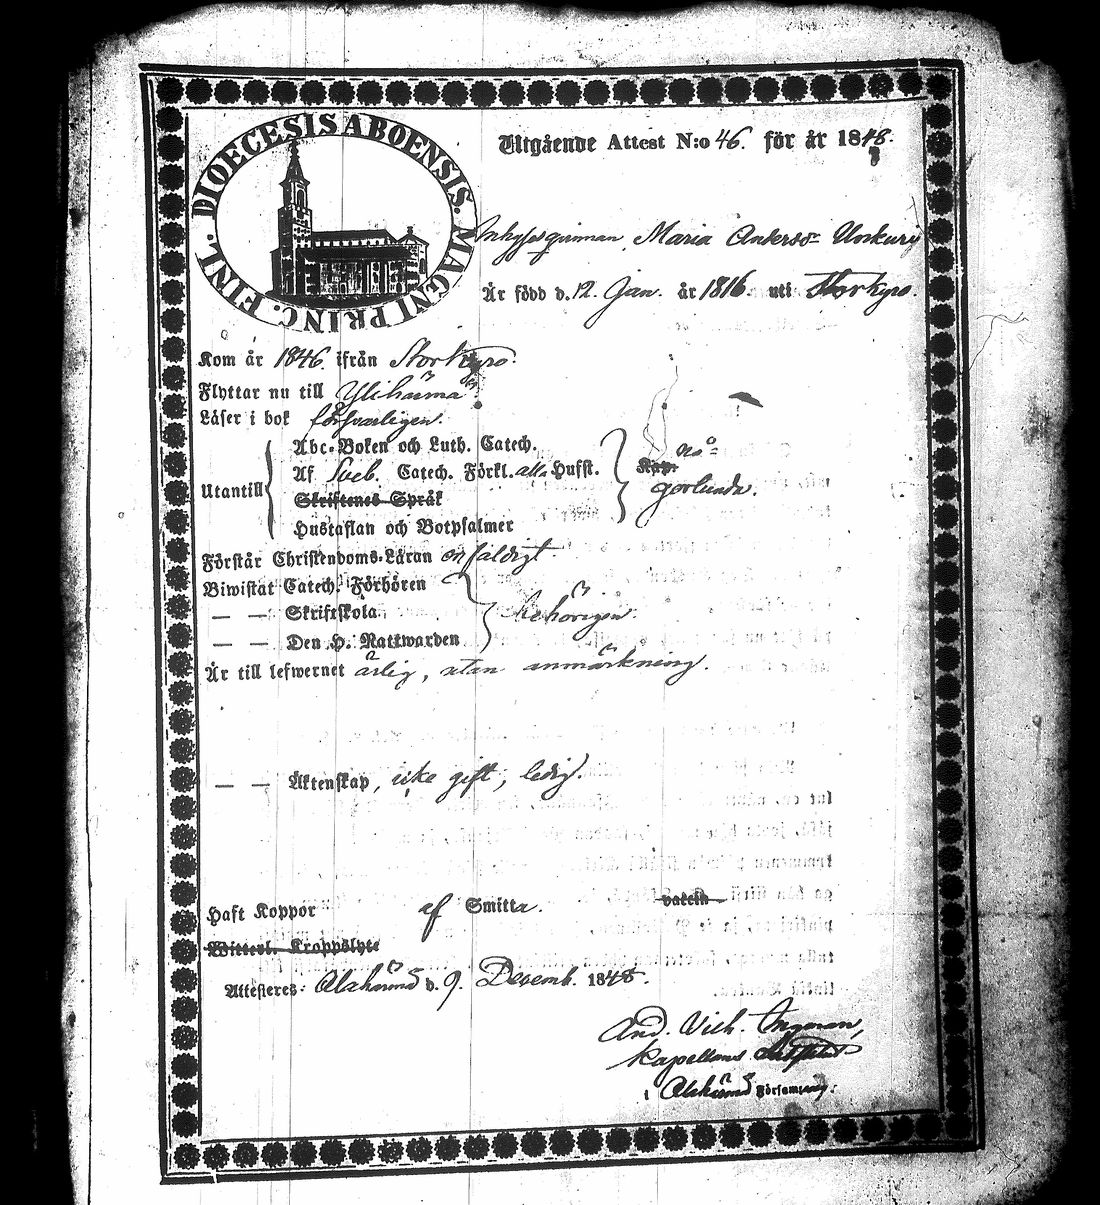 DIOECESIS ABOENSIS. MAGNI PRINC. FINL.
Utgående Attest N:o 46. för år 1848.
Inhysesqvinnan Maria Anderss= Unkuri
Är född d. 12. Jan. år 1816 uti Storkyro.
Kom år 1846. ifrån Storkyro.
Flyttar nu till Ylihärmä
Läser i bok försvarligen.
Abc-Boken och Luth. Catech.
Af Sveb. Catech. Förkl. alla Hufst.
Utantill
Skriftenes Språk
Hustaflan och Botpsalmer
Förstår Christendoms-Läran enfaldigt
Biwistat Catech. Förhören
— — Skriftskola
behörigen.
— — Den H. Nattwarden
Är till lefwernet ärlig, utan anmärkning.
— — Äktenskap, icke gift, ledig.
Haft Koppor af Smitta. vaccin
Witterl. Kroppslyte
Attesteres: Alahärmä d. 9. Decemb. 1848.
And. Vilh. Ingman,
Kapellans
i Alahärmä Församling.